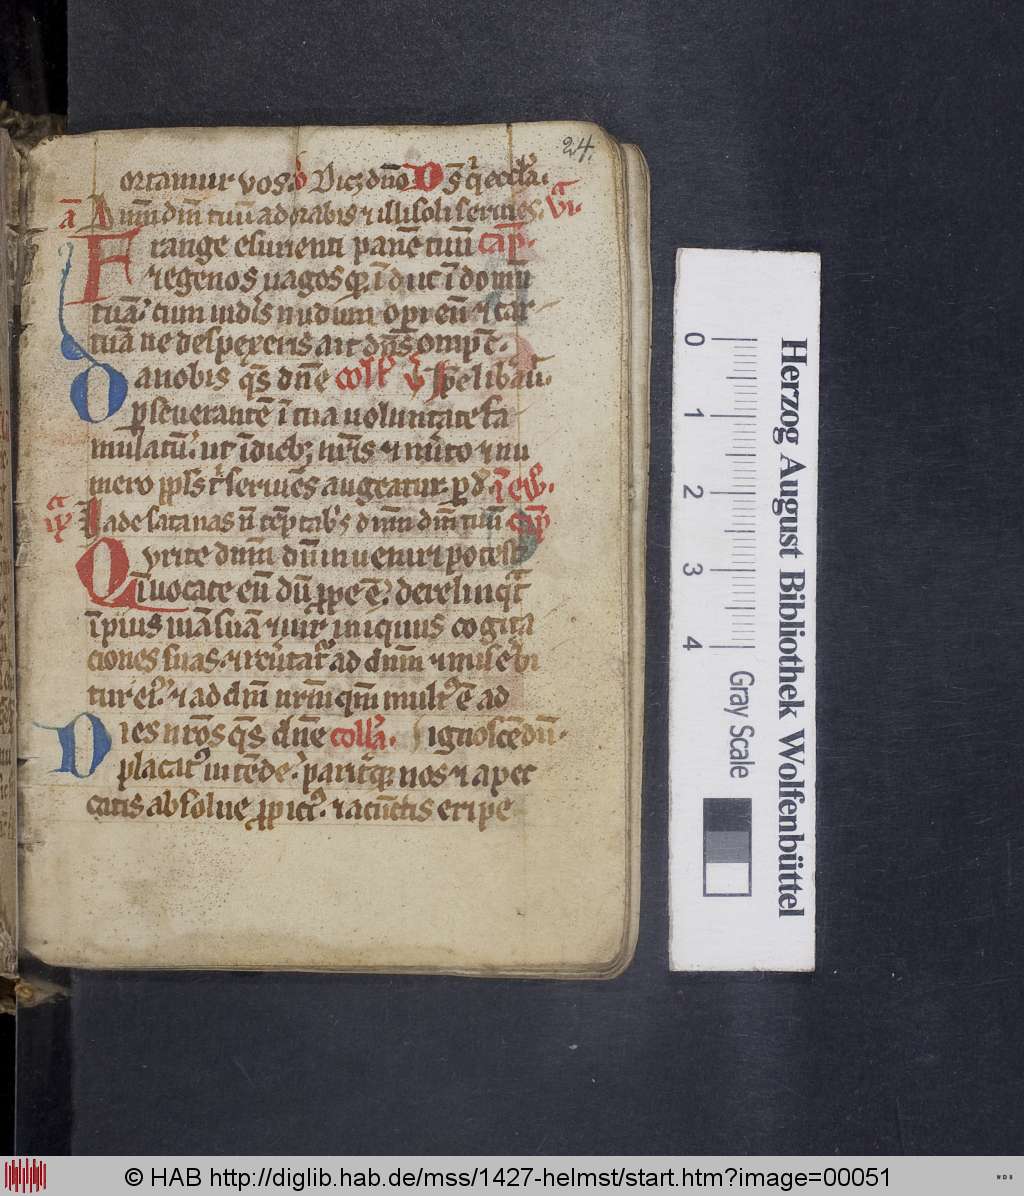 24.
ortamur vos. v Dicz dn̄o D s̄ q̄ eccłа.
a D nm̄ dm̄ tuū adorabis ⁊ illi soli servies. vi
F range esurienti panē tuū cap.
⁊ egenos vagosq̄ īduc ī domū
tuā. cum vidīs nudum opi eū ⁊ car
tuā ne despexeris ait dn̄s omp̄c̄.
D a nobis q̄s dn̄e coll̄ v̄ Ip̄e libāu.
pseverantē ī tua voluntate fa
mulatū. ut ī diebȝ nr̄is ⁊ mr̄ito ⁊ nu
mero ppl̄s t̄ serviēs augeatur. p d. ī ew̄.
a V ade satanas n̄ tēptab̄s dnm̄ dm̄ tuū cap
Q Vrite dnm̄ dū inveniri potest
īvocate eū dū ppe ē. derelinqt̄
īpius viā suā ⁊ vir iniquus cogita
ciones suas. ⁊ rev̄tat̄ ad dnm̄ ⁊ misebi
tur ei. ⁊ ad dm̄ nrm̄ qm̄ mult ē ad
P ces nr̄os q̄s dn̄e coll̄a. ignoscēdū.
placat intēde. parit̄q nos ⁊ a pec
catis absolve ppict. ⁊ a cūctis eripe
0 1 2 3 4
Gray Scale
Herzog August Bibliothek Wolfenbüttel
© HAB http://diglib.hab.de/mss/1427-helmst/start.htm?image=00051